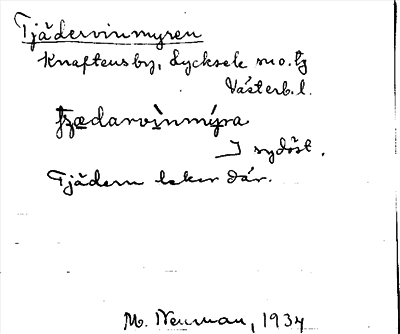 Tjädervinmyren
Knaftensby, Lycksele so.
Västerb. l.
sydöst.
Tjädern leker där.
M. Neuman, 1934